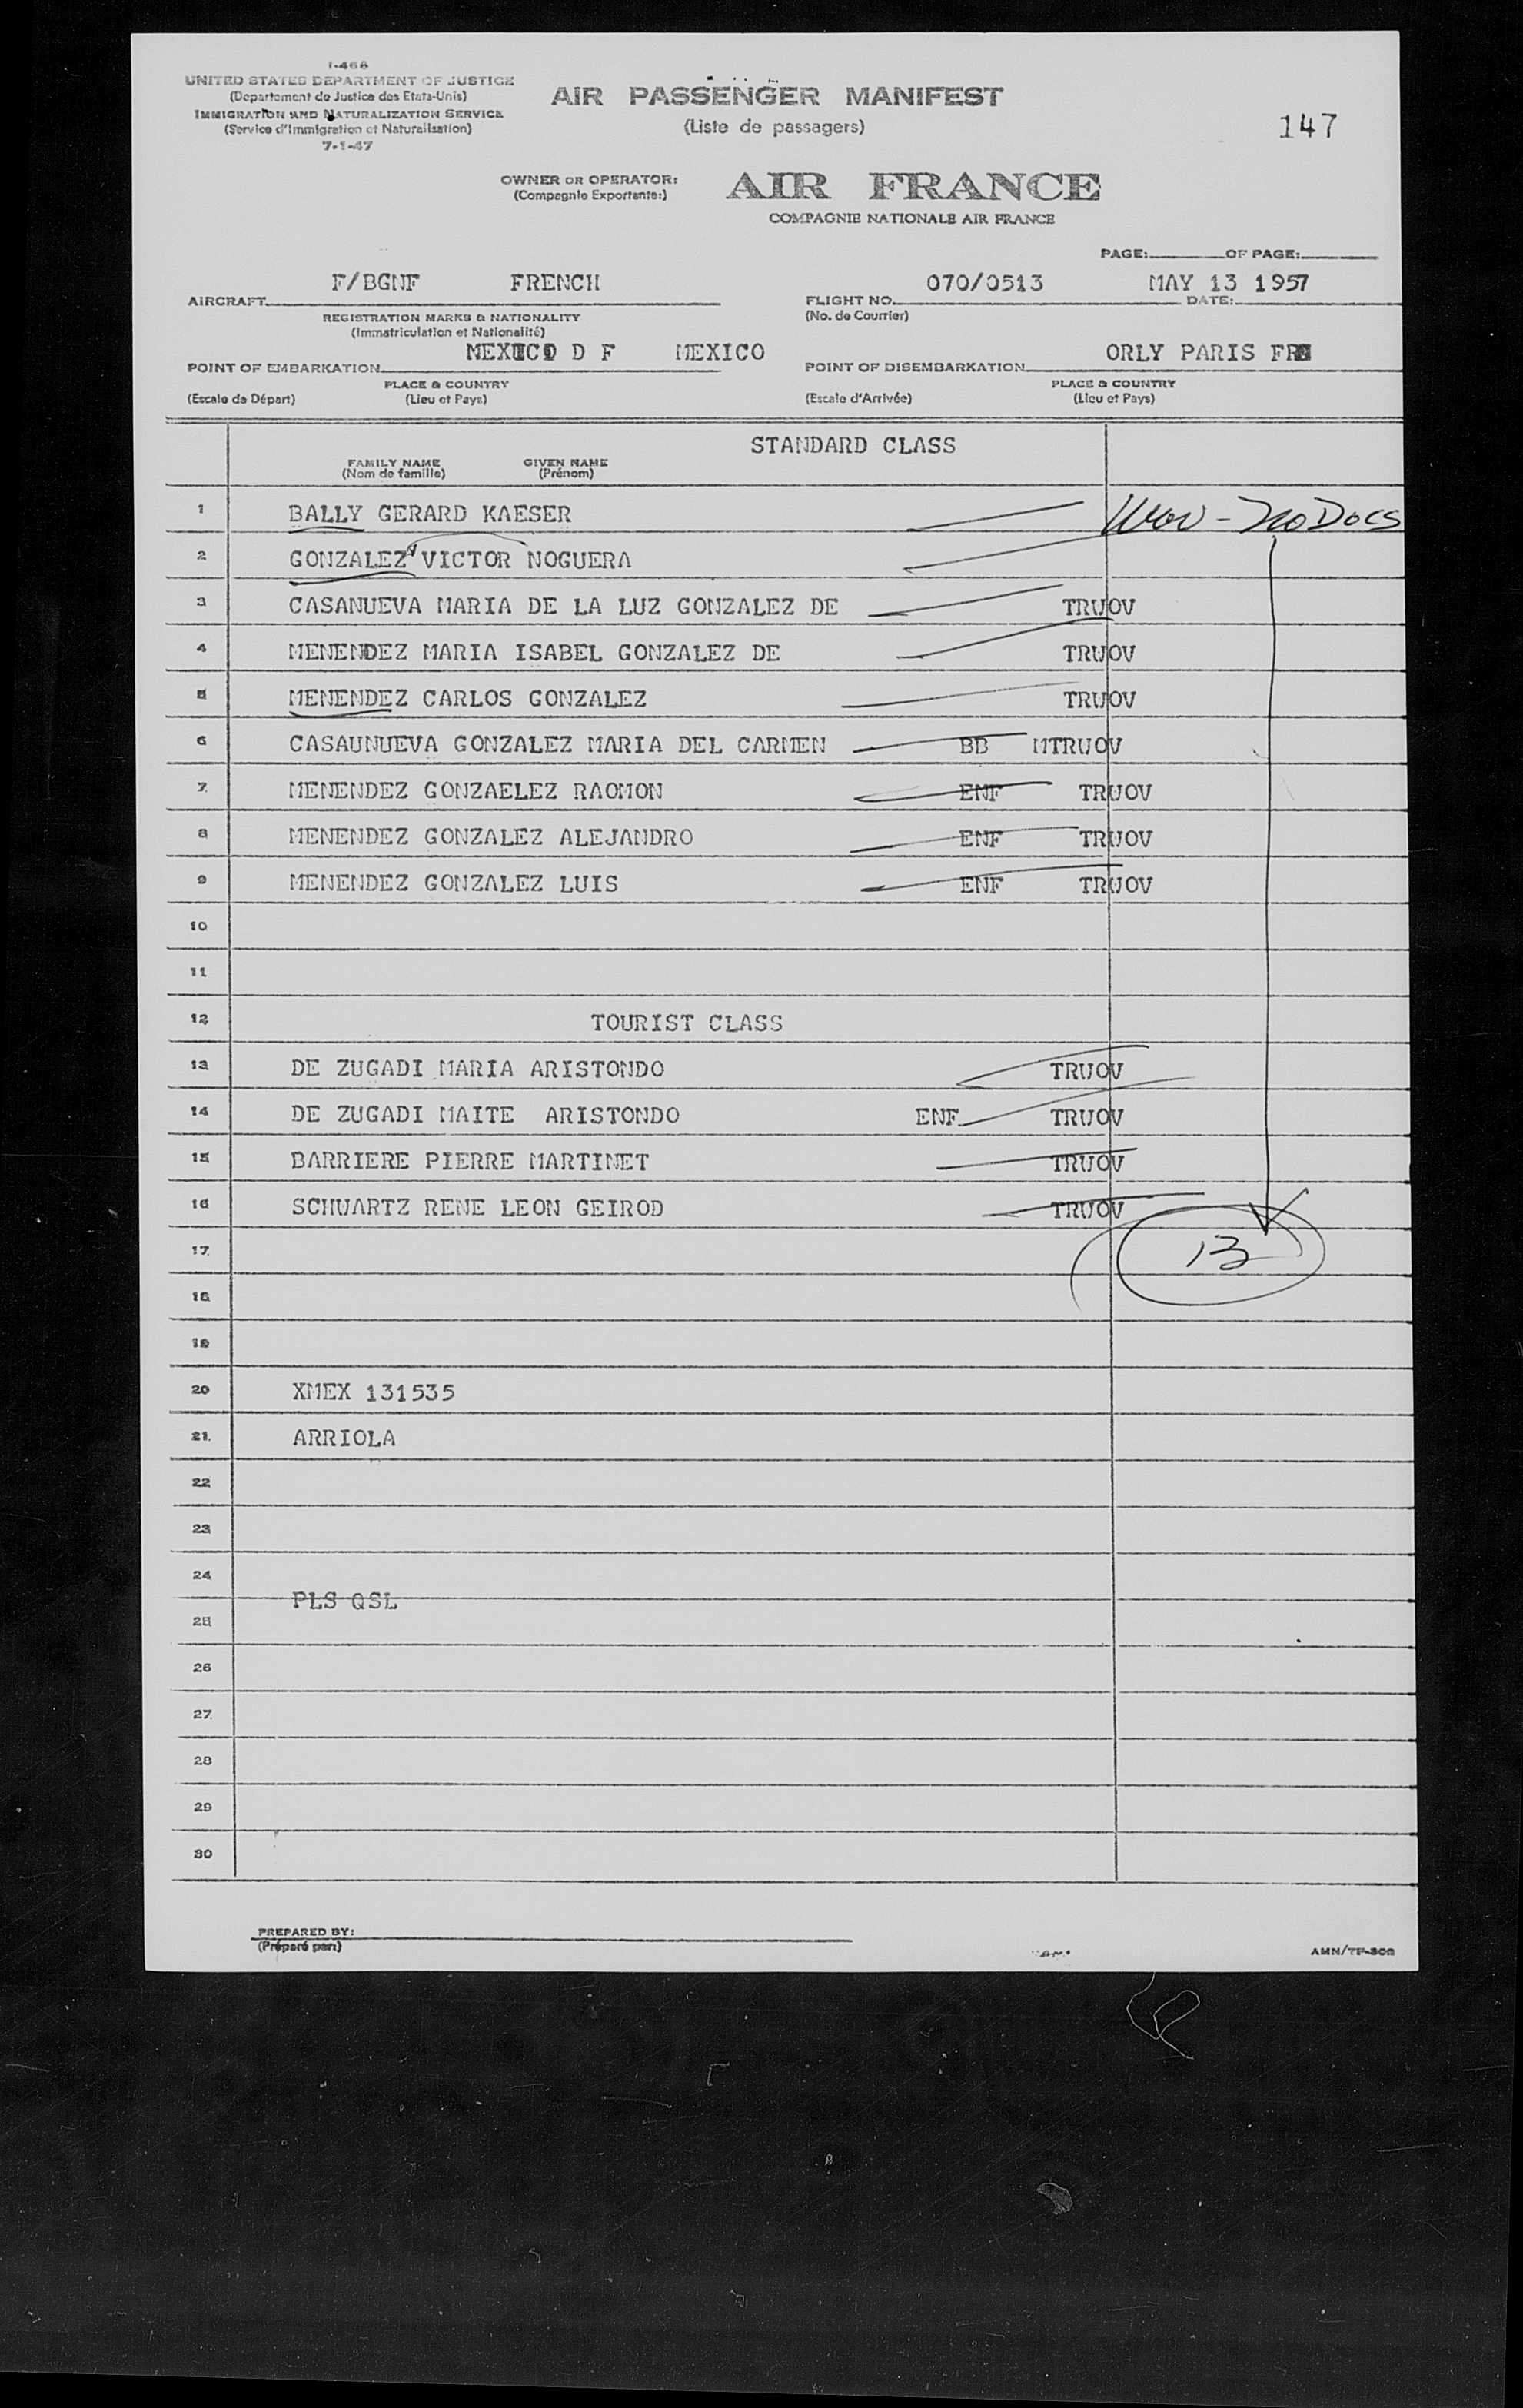 I-466
UNITED STATES DEPARTMENT OF JUSTICE
(Departement de Justice des Etats-Unis)
IMMIGRATION AND NATURALIZATION SERVICE
(Service d'Immigration et Naturalisation)
7-1-47
AIR PASSENGER MANIFEST
(Liste de passagers)
147
OWNER OR OPERATOR:
(Compagnie Exportante:)
AIR FRANCE
COMPAGNIE NATIONALE AIR FRANCE
PAGE: OF PAGE:
F/BGNF FRENCH 070/0513 MAY 13 1957
AIRCRAFT FLIGHT NO. DATE:
REGISTRATION MARKS & NATIONALITY (No. de Courrier)
(Immatriculation et Nationalité)
MEXICO D F MEXICO ORLY PARIS
POINT OF EMBARKATION POINT OF DISEMBARKATION
PLACE & COUNTRY PLACE & COUNTRY
(Escale de Départ) (Lieu et Pays) (Escale d'Arrivée) (Lieu et Pays)
STANDARD CLASS
FAMILY NAME GIVEN NAME
(Nom de famille) (Prénom)
1 BALLY GERARD KAESER - No Docs
2 GONZALEZ VICTOR NOGUERA
3 CASANUEVA MARIA DE LA LUZ GONZALEZ DE TRWOV
4 MENENDEZ MARIA ISABEL GONZALEZ DE TRWOV
5 MENENDEZ CARLOS GONZALEZ TRWOV
6 CASAUNUEVA GONZALEZ MARIA DEL CARMEN BB MTRWOV
7 MENENDEZ GONZAELEZ RAOMON ENF TRWOV
8 MENENDEZ GONZALEZ ALEJANDRO ENF TRWOV
9 MENENDEZ GONZALEZ LUIS ENF TRWOV
10
11
12 TOURIST CLASS
13 DE ZUGADI MARIA ARISTONDO TRWOV
14 DE ZUGADI MAITE ARISTONDO ENF TRWOV
15 BARRIERE PIERRE MARTINET TRWOV
16 SCHWARTZ RENE LEON GEIROD TRWOV
17 13
18
19
20 XMEX 131535
21 ARRIOLA
22
23
24
PLS QSL
25
26
27
28
29
30
PREPARED BY:
(Préparé par:)
AMN/TF-302